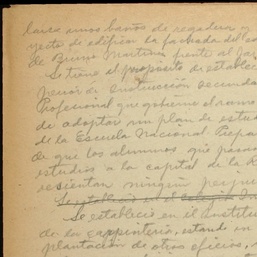 tarea unos baños de regadera y
yecto de edificio de fachada del
de Bruno Martinez frente al Jar
Se tiene el propósito de establec
perior de instrucción secunda
Profesional que gobierne el
de adoptar un plan de estud
de la Escuela Nacional Prepa
de que los alumnos que pasan
estudios a la capital de la R
resientan ningún perjui
Se estableció en el
Se estableció en el Institu
de la carpintería, estando en
plantación de otros oficios,